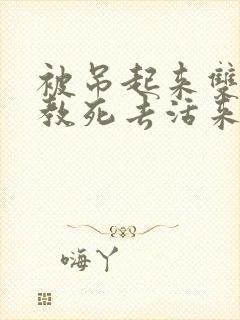 被吊起来双
教死去活来
嗨丫